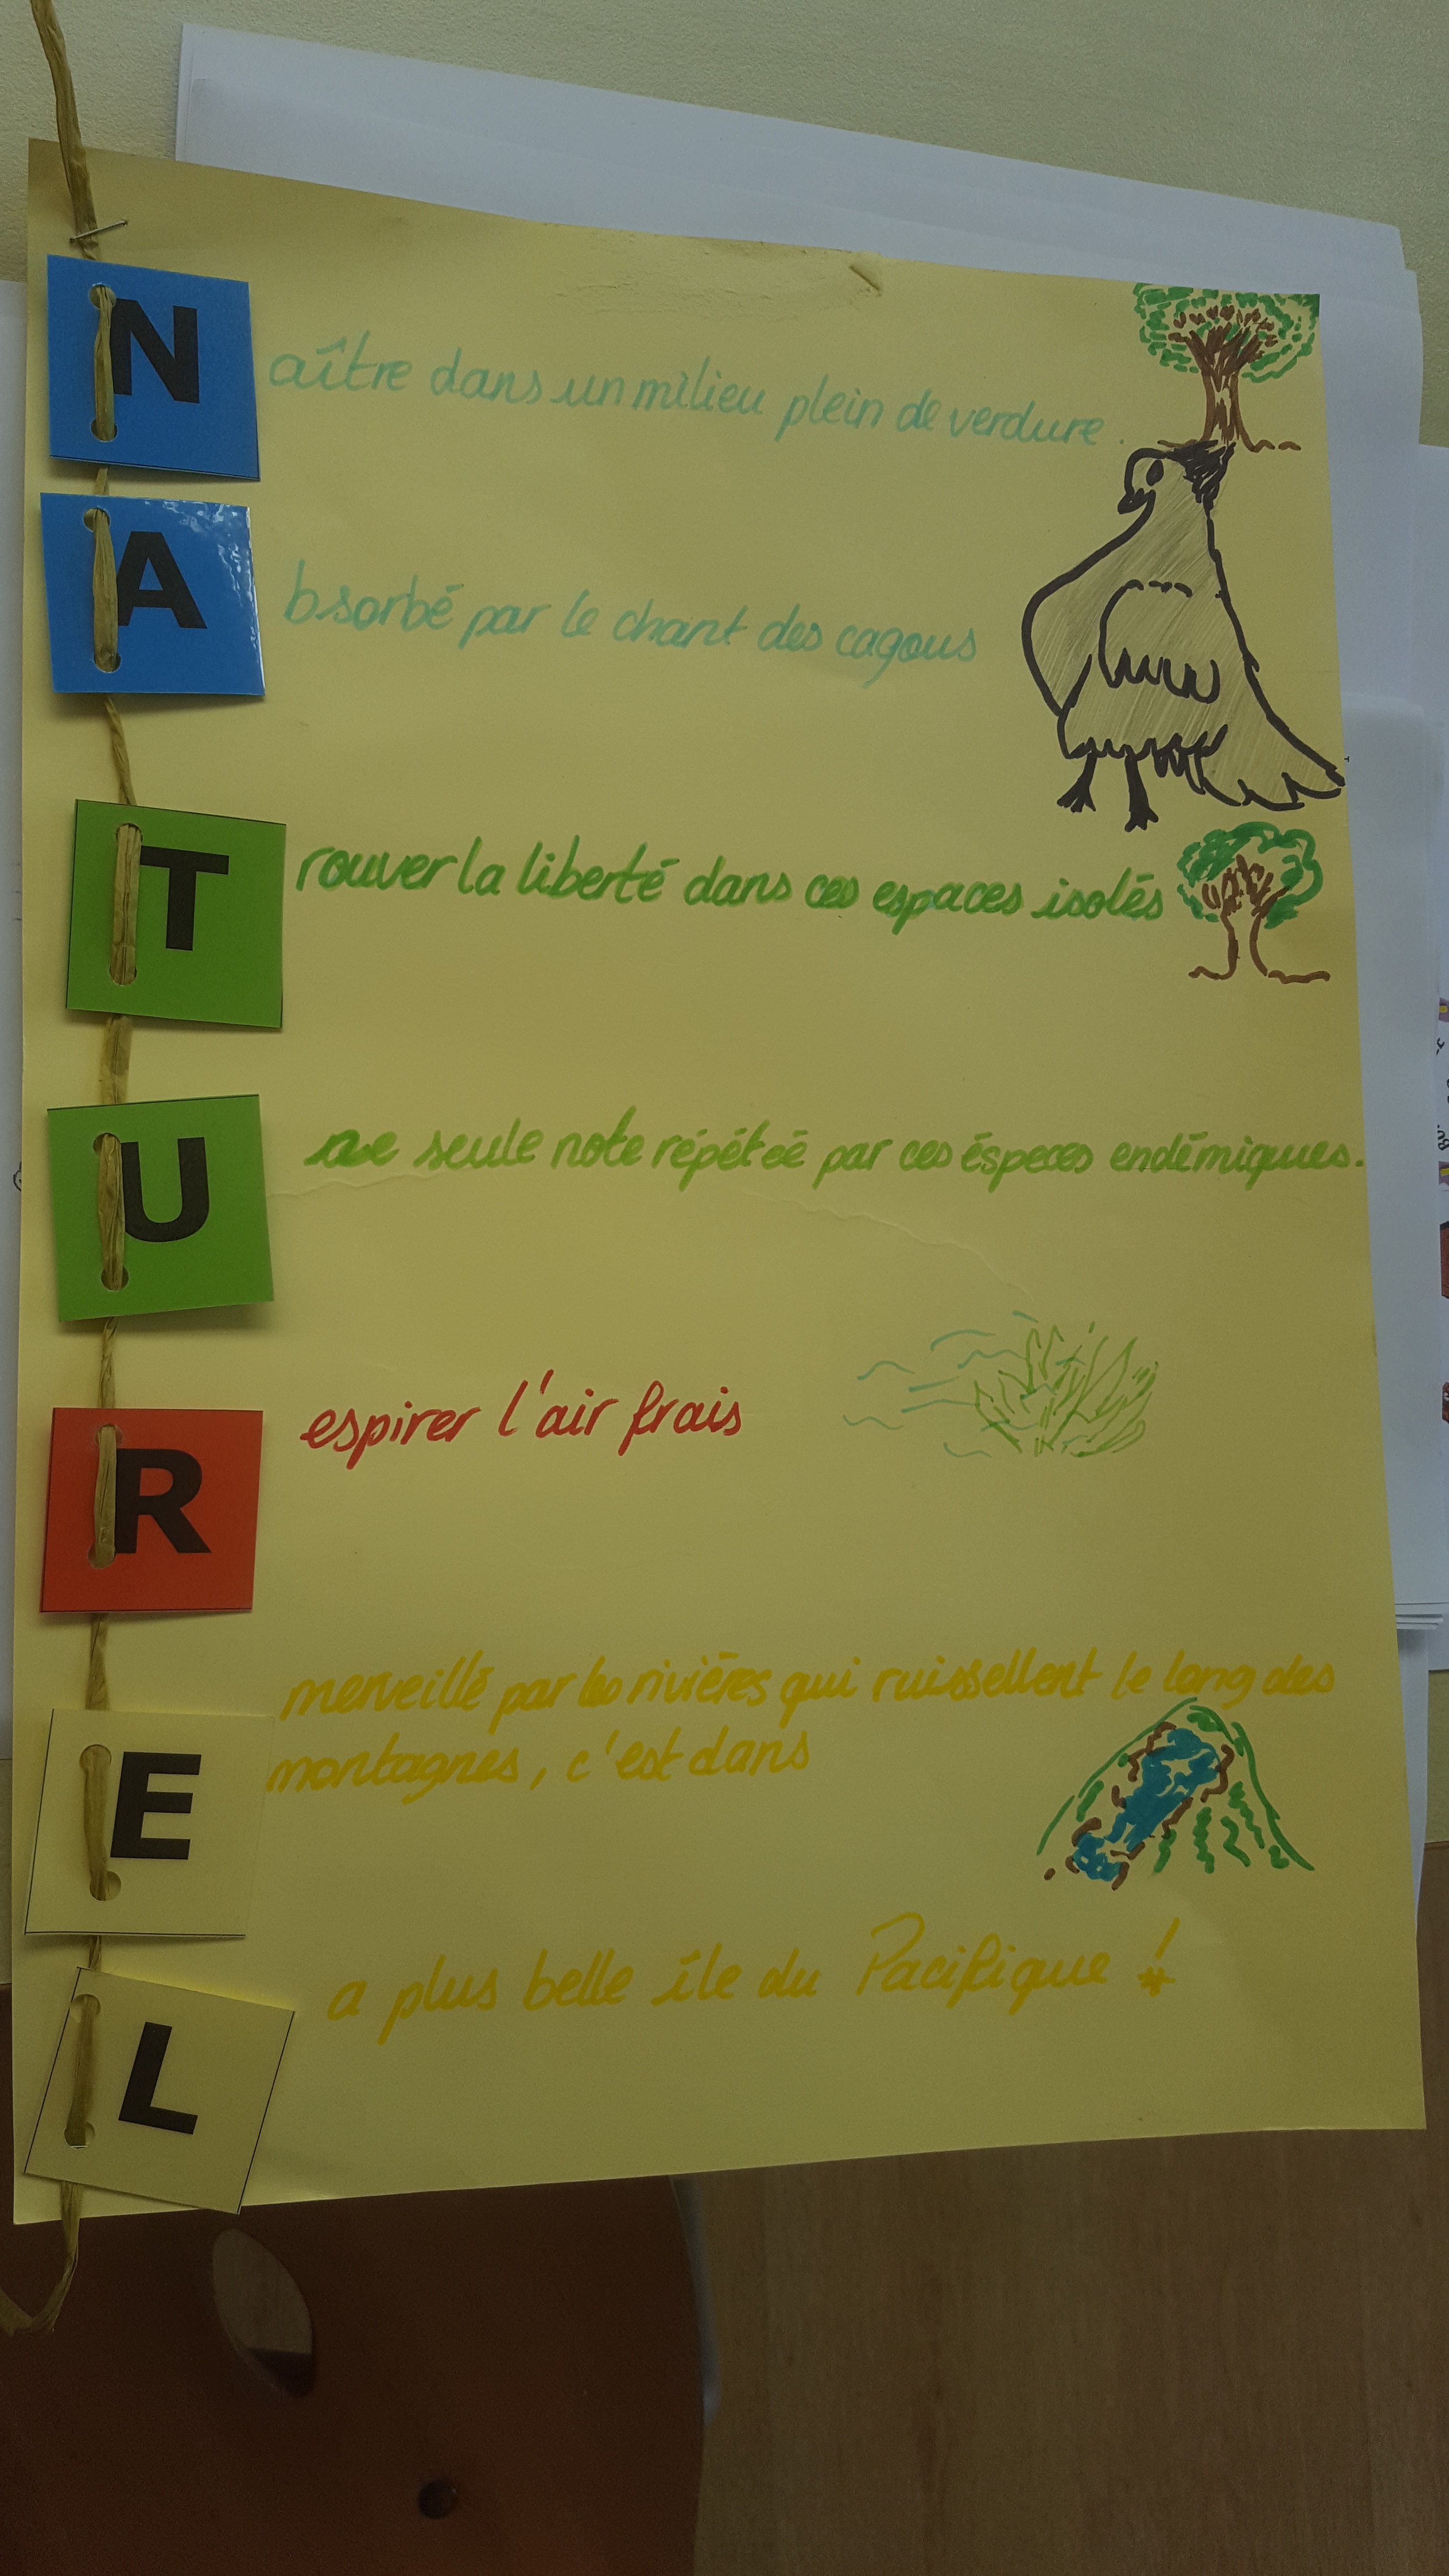 Naître dans un milieu plein de verdure.
Absorbé par le chant des cagous
Trouver la liberté dans ces espaces isolés
Une seule note répétéé par ces éspeces endémiques.
Respirer l'air frais
Emerveillé par les rivières qui ruissellent le long des
montagnes, c'est dans
La plus belle île du Pacifique !